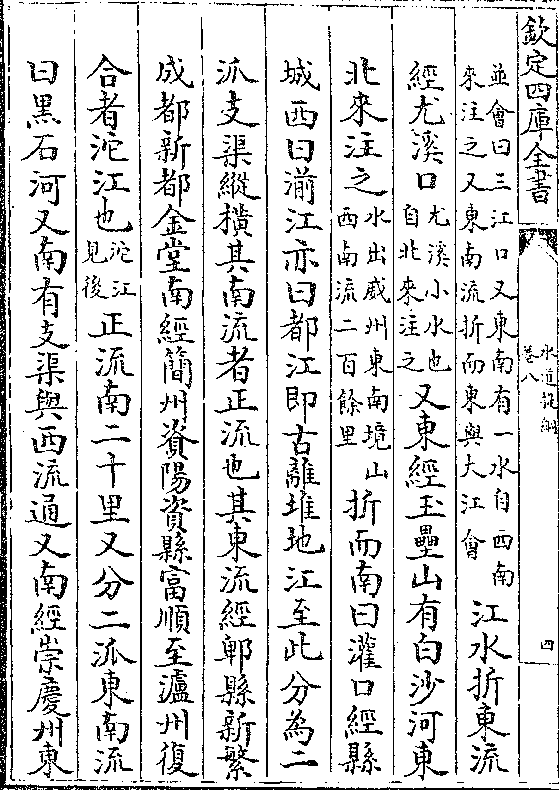 欽定四庫全書
水道提綱
卷八
四
並會曰三江口又東南有一水自西南
來注之又東南流折而東與大江會
江水折東流
經尤溪口
尤溪小水也
自北來注之
又東經玉壘山有白沙河東
北來注之
水出威州東南境山
西南流二百餘里
折而南曰灌口經縣
城西曰湔江亦曰都江即古離堆地江至此分為二
派支渠縱橫其南流者正流也其東流經郫縣新繁
成都新都金堂南經簡州資陽資縣富順至瀘州復
合者沱江也
沱江
見後
正流南二十里又分二派東南流
曰黑石河又南有支渠與西流通又南經崇慶州東